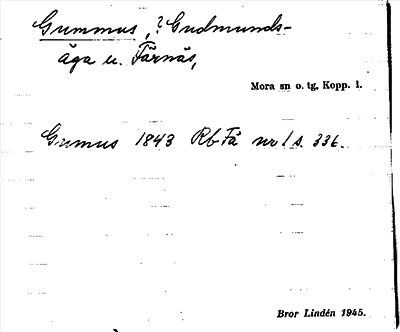 Gummus, ? Gudmunds-
äga u. Färnäs,
Mora sn o. tg, Kopp. l.
Gumus 1843 Rb Få nr 1 s. 336.
Bror Lindén 1945.